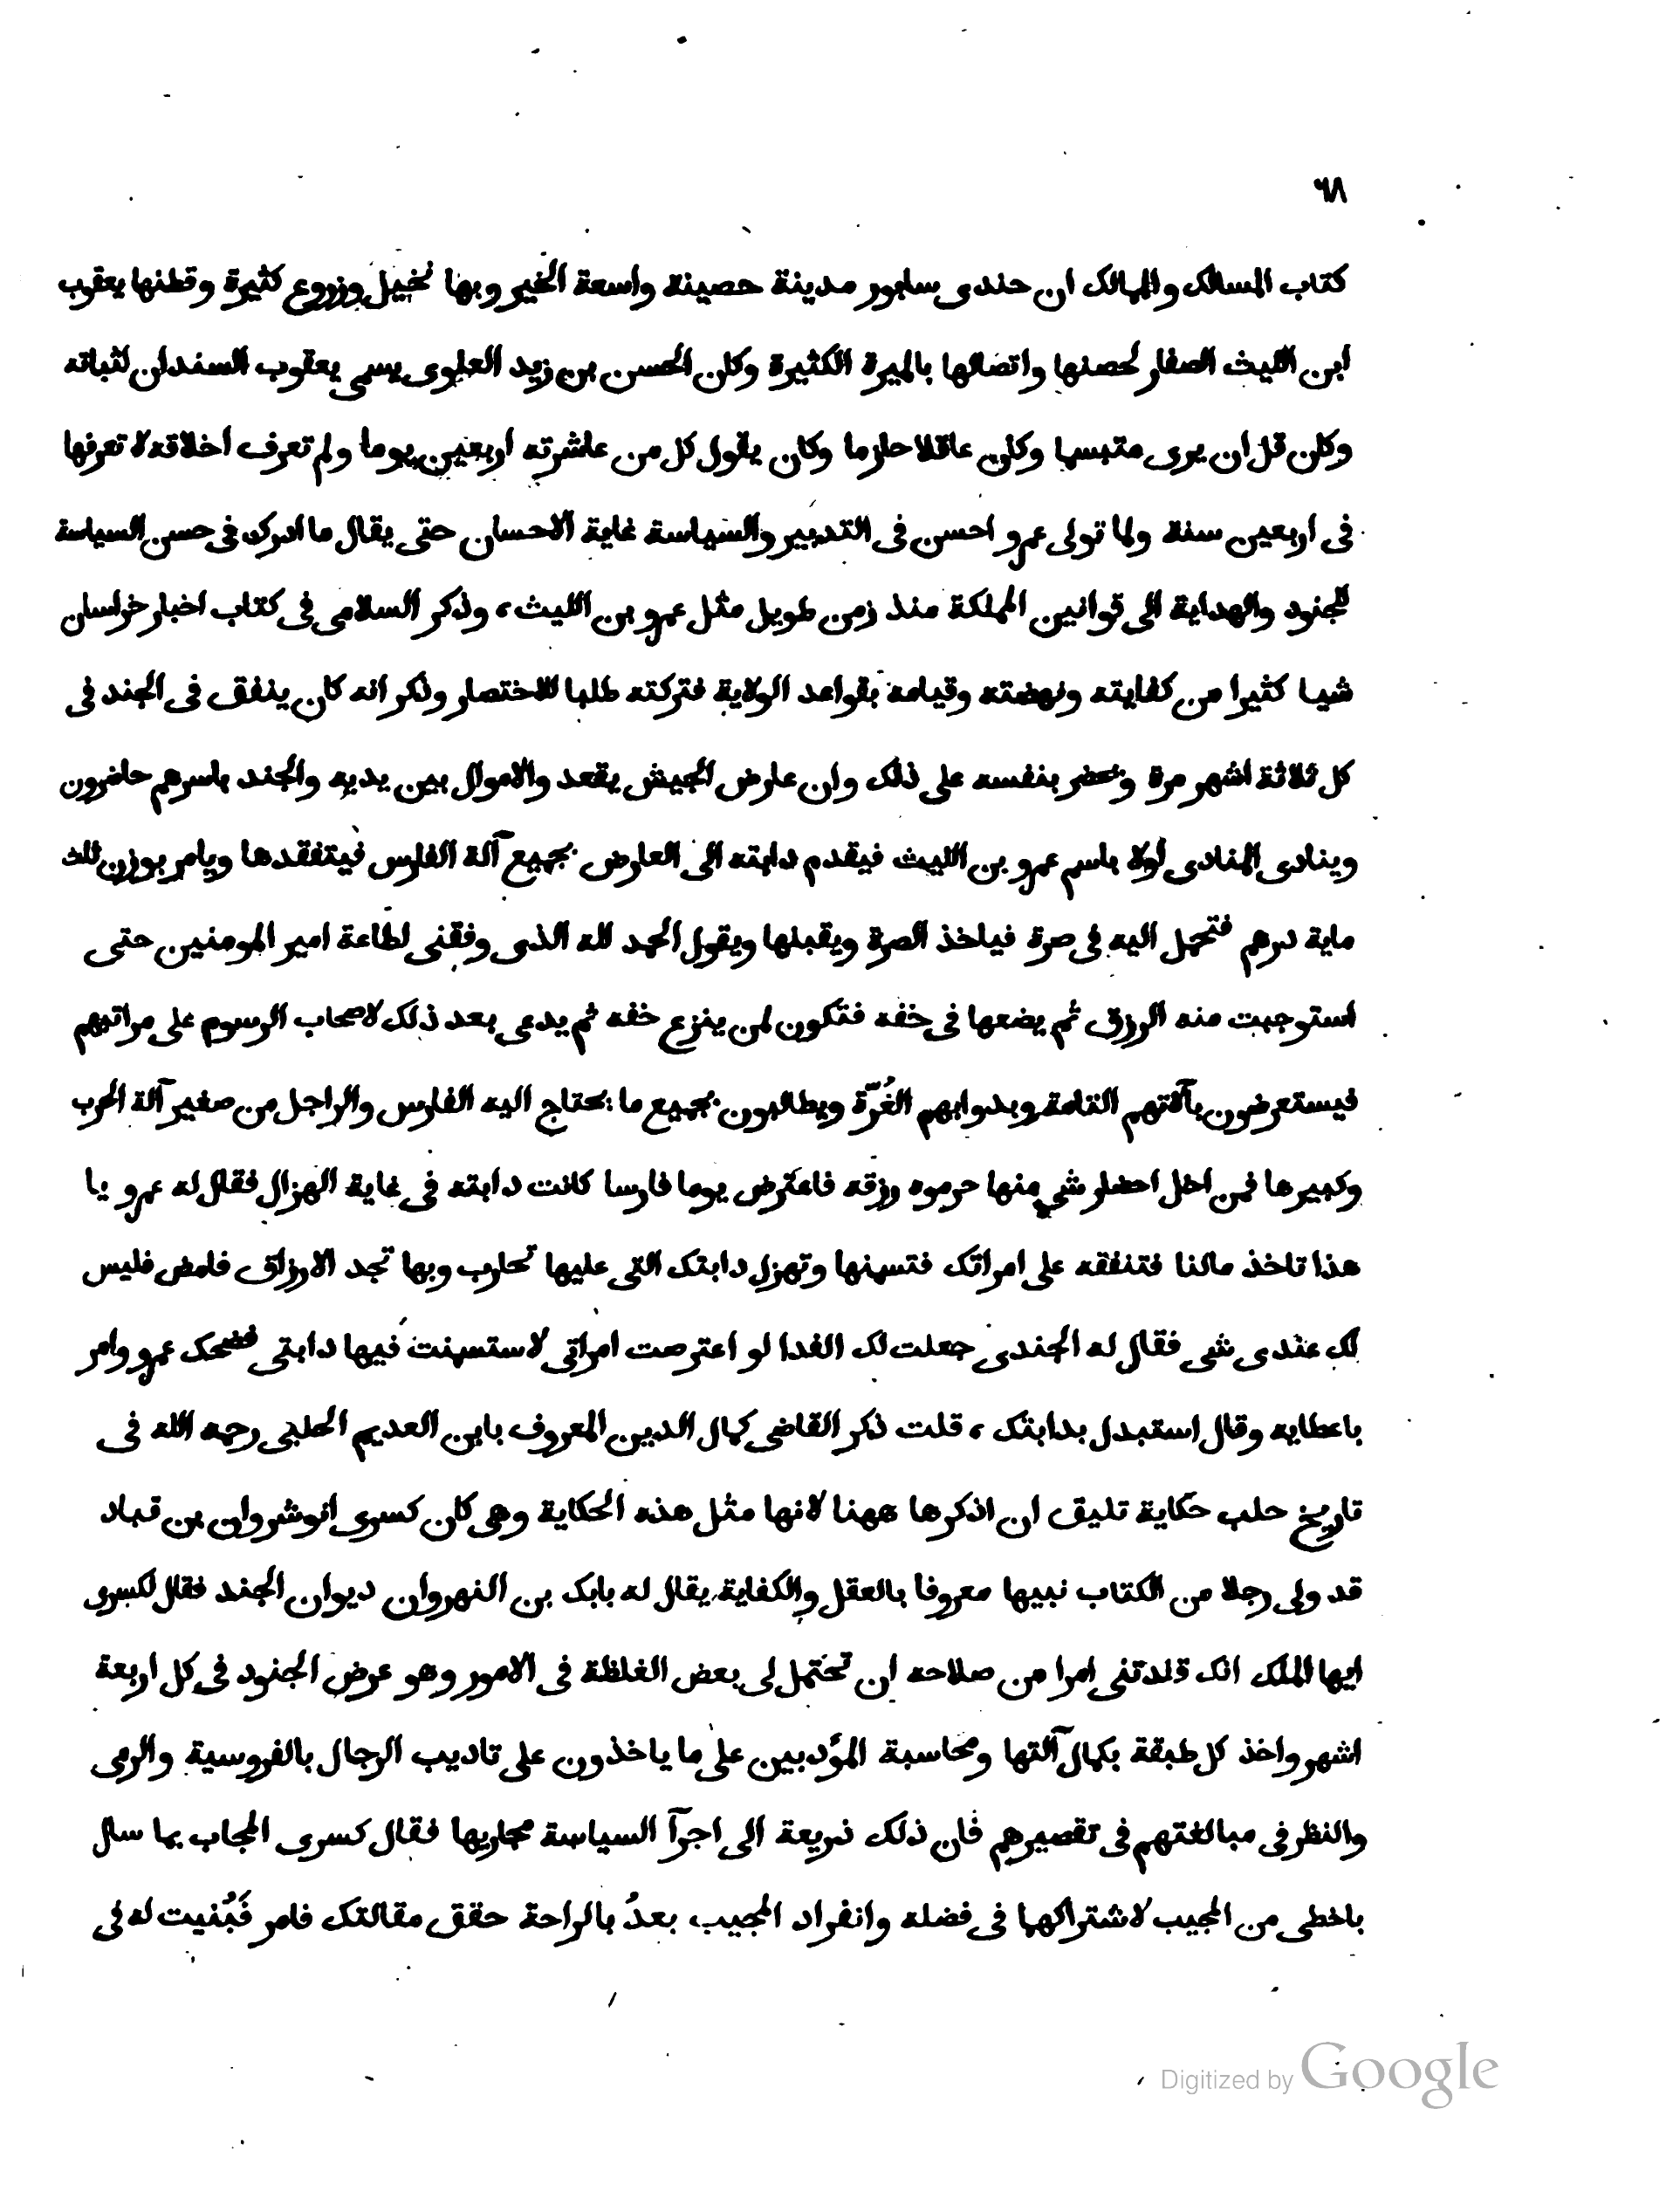 ٦٨
كتاب المسالك والممالك ان حندى سابور مدينة حصينة واسعة الخير وبها نخيل وزروع كثيرة وقطنها يعقوب
ابن الليث الصفار لحصنها واتصالها بالميرة الكثيرة وكان الحسن بن زيد العلوى يسمى يعقوب السندان لثباته
وكان قل ان يرى متبسما وكان عاقلا حازما وكان يقول كل من عاشرته اربعين يوما ولم تعرف اخلاقه لا تعرفها
فى اربعين سنة ولما تولى عمرو احسن فى التدبير والسياسة غاية الاحسان حتى يقال ما ادرك فى حسن السياسة
للجنود والهداية الى قوانين المملكة منذ زمن طويل مثل عمرو بن الليث، وذكر السلامى فى كتاب اخبار خراسان
شيا كثيرا من كفايته ونهضته وقيامه بقواعد الولاية فتركته طلبا للاختصار وذكر انه كان ينفق فى الجند فى
كل ثلاثة اشهر مرة ويحضر بنفسه على ذلك وان عارض الجيش يقعد والاموال بين يديه والجند باسرهم حاضرون
وينادى المنادى اولا باسم عمرو بن الليث فيقدم دابته الى العارض بجميع آلة الفارس فيتفقدها ويامر بوزن ثلث
ماية درهم فتحمل اليه فى صرة فياخذ الصرة ويقبلها ويقول الحمد لله الذى وفقنى لطاعة امير المومنين حتى
استوجبت منه الرزق ثم يضعها فى خفه فتكون لمن ينزع خفه ثم يدعى بعد ذلك لاصحاب الرسوم على مراتبهم
فيستعرضون بآلاتهم التامة وبدوابهم الغُرّة ويطالبون بجميع ما يحتاج اليه الفارس والراجل من صغير آلة الحرب
وكبيرها فمن اخل احضار شى منها حرموه رزقه فاعترض يوما فارسا كانت دابته فى غاية الهزال فقال له عمرو يا
هذا تاخذ مالنا فتنفقه على امراتك فتسمنها وتهزل دابتك التى عليها تحارب وبها تجد الارزاق فامض فليس
لك عندى شى فقال له الجندى جعلت لك الفدا لو اعترصت امراتى لاستسمنت فيها دابتى فضحك عمرو وامر
باعطايه وقال استبدل بدابتك، قلت ذكر القاضى كمال الدين المعروف بابن العديم الحلبى رحمه الله فى
تاريخ حلب حكاية تليق ان اذكرها ههنا لانها مثل هذه الحكاية وهى كان كسرى انوشروان بن قباد
قد ولى رجلا من الكتاب نبيها معروفا بالعقل والكفاية يقال له بابك بن النهروان ديوان الجند فقال لكسرى
ايها الملك انك قلدتنى امرا من صلاحه ان تحتمل لى بعض الغلظة فى الامور وهو عرض الجنود فى كل اربعة
اشهر واخذ كل طبقة بكمال آلتها ومحاسبة المؤدبين على ما ياخذون على تاديب الرجال بالفروسية والرمى
والنظر فى مبالغتهم فى تقصيرهم فان ذلك ذريعة الى اجرآ السياسة مجاريها فقال كسرى المجاب بما سال
باخطى من المجيب لاشتراكهما فى فضله وانفراد المجيب بعدُ بالراحة حقق مقالتك فامر فَبُنيت له فى
Digitized by Google